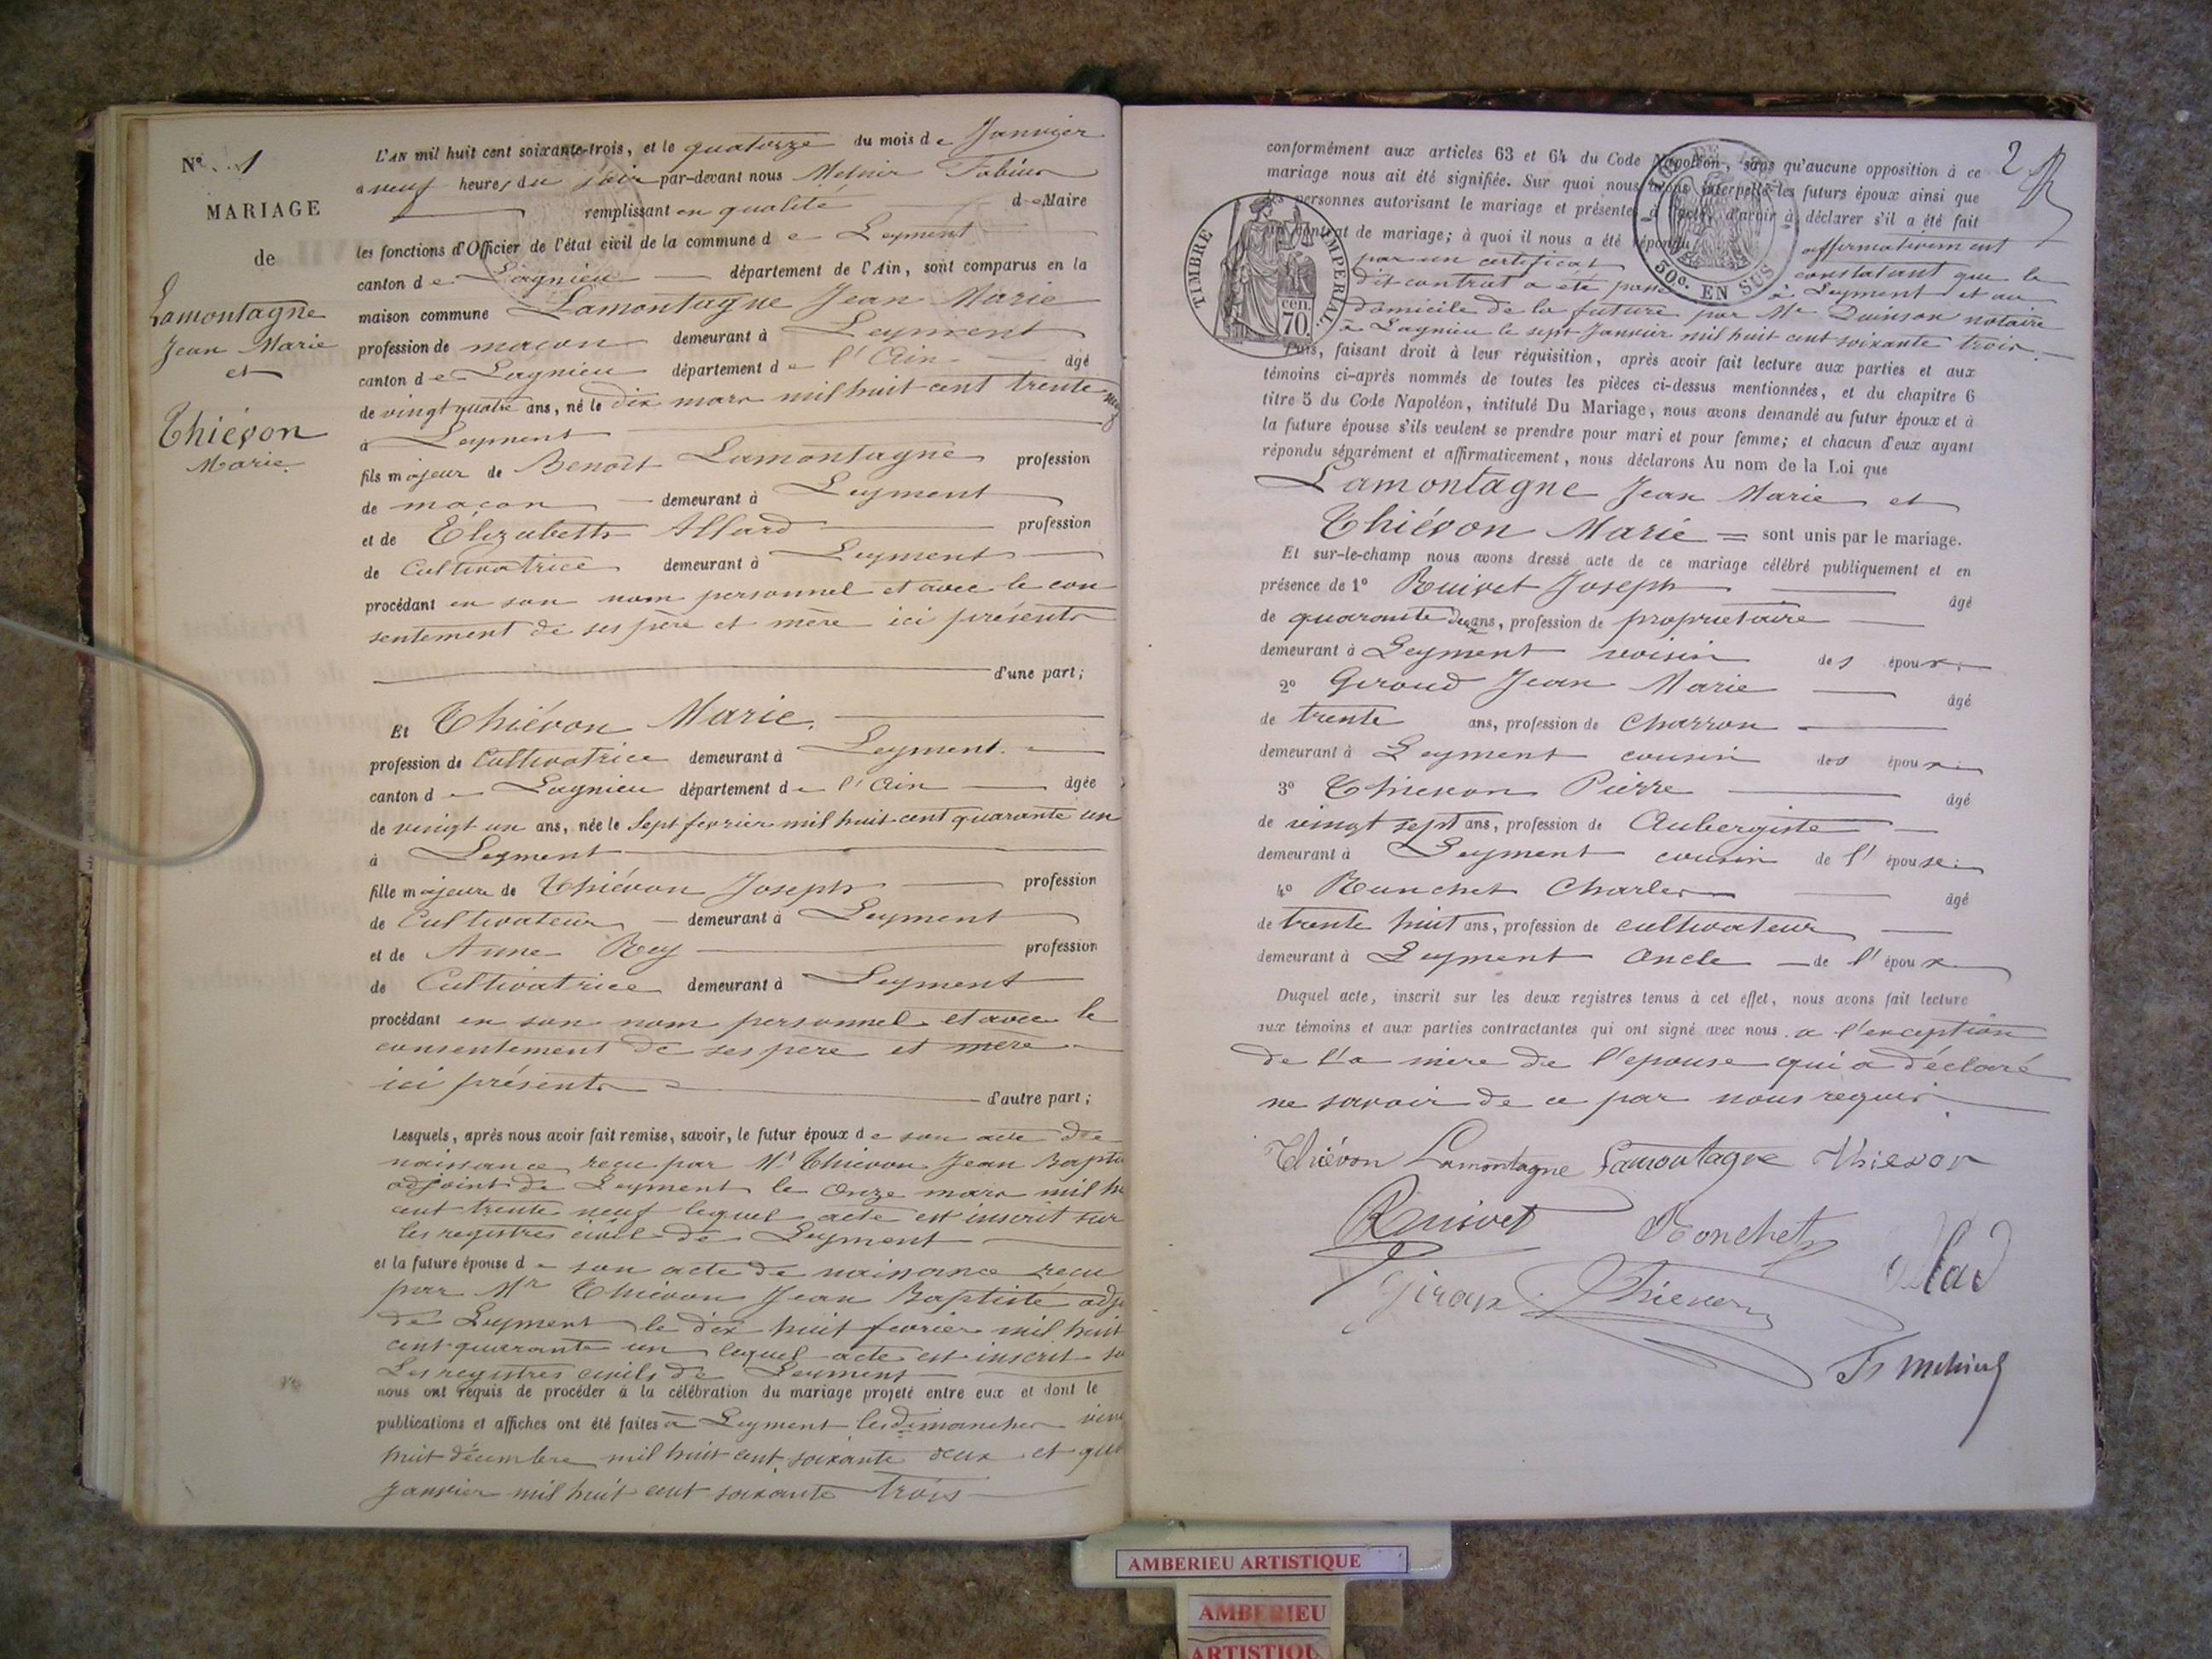 N° 1
MARIAGE
de
Lamontagne
Jean Marie
et
Thiévon
Marie.
L'AN mil huit cent soixante-trois, et le quatorze du mois de Janvier
a neuf heures du soir par-devant nous
remplissant en qualité de Maire
les fonctions d'Officier de l'état civil de la commune de Leyment
canton de Lagnieu département de l'Ain, sont comparus en la
maison commune Lamontagne Jean Marie
profession de maçon demeurant à Leyment
canton de Lagnieu département de l'Ain âgé
de vingt quatre ans, né le dix mars mil huit cent trente neuf
à Leyment
fils majeur de Benoît Lamontagne profession
de maçon demeurant à Leyment
et de Elizabeth Allard profession
de Cultivatrice demeurant à Leyment
procédant en son nom personnel et avec le con
sentement de ses père et mère ici présents
d'une part;
Et Thiévon Marie.
profession de Cultivatrice demeurant à Leyment.
canton de Lagnieu département de l'Ain âgée
de vingt un ans, née le Sept fevrier mil huit cent quarante un
à Leyment
fille majeure de Thiévon Joseph profession
de Cultivateur demeurant à Leyment
et de Anne Rey profession
de Cultivatrice demeurant à Leyment
procédant en son nom personnel et avec le
consentement de ses pere et mère
ici présents
d'autre part;
Lesquels, après nous avoir fait remise, savoir, le futur époux de son acte de
naissance reçu par Mr Thiévon Jean Bapti
adjoint de Leyment le Onze mars mil h
cent trente neuf lequel acte est inscrit sur
les registres civils de Leyment
et la future épouse de son acte de naissance reçu
par Mr Thiévon Jean Baptiste adj
de Leyment le dix huit fevrier mil huit
cent quarante un lequel acte est inscrit su
Les registres civils de Leyment
nous ont requis de procéder à la célébration du mariage projeté entre eux et dont le
publications et affiches ont été faites à Leyment les dimanches vin
huit décembre mil huit cent soixante deux et qu
Janvier mil huit cent soixante trois
2
conformément aux articles 63 et 64 du Code Napoléon, sans qu'aucune opposition à ce
mariage nous ait été signifiée. Sur quoi nous avons interpellé les futurs époux ainsi que
les personnes autorisant le mariage et présentes à l'acte, d'avoir à déclarer s'il a été fait
un contrat de mariage; à quoi il nous a été répondu affirmativement
par un certificat constatant que le
dit contrat a été passé à Leyment et au
domicile de la future par Me Quinson notaire
à Lagnieu le sept Janvier mil huit cent soixante trois.
TIMBRE IMPERIAL
cen
70.
50c. EN SUS
Puis, faisant droit à leur réquisition, après avoir fait lecture aux parties et aux
témoins ci-après nommés de toutes les pièces ci-dessus mentionnées, et du chapitre 6
titre 5 du Code Napoléon, intitulé Du Mariage, nous avons demandé au futur époux et à
la future épouse s'ils veulent se prendre pour mari et pour femme; et chacun d'eux ayant
répondu séparément et affirmativement, nous déclarons Au nom de la Loi que
Lamontagne Jean Marie et
Thiévon Marie = sont unis par le mariage.
Et sur-le-champ nous avons dressé acte de ce mariage célébré publiquement et en
présence de 1° Ruivet Joseph âgé
de quarante deux ans, profession de propriétaire
demeurant à Leyment voisin des époux.
2° Giroud Jean Marie âgé
de trente ans, profession de Charron
demeurant à Leyment cousin des époux.
3° Thievon Pierre âgé
de vingt sept ans, profession de Aubergiste
demeurant à Leyment cousin de l'épouse.
4° Runchet Charles âgé
de trente huit ans, profession de cultivateur
demeurant à Leyment Oncle de l'époux.
Duquel acte, inscrit sur les deux registres tenus à cet effet, nous avons fait lecture
aux témoins et aux parties contractantes qui ont signé avec nous. a l'exception
de la mère de l'epouse qui a déclaré
ne savoir de ce par nous requis.
Thiévon Lamontagne Lamontagne Thievon
Ruivet Ronchet
Thievon
AMBERIEU ARTISTIQUE
AMBERIEU
ARTISTIQU